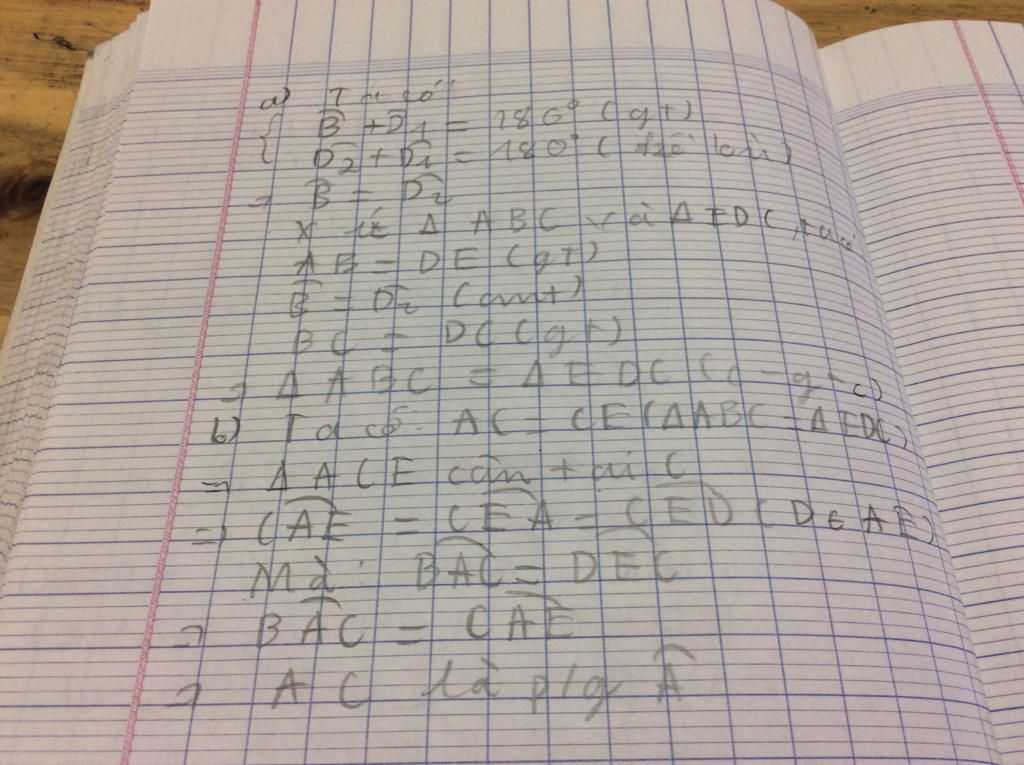 a) Ta có
{ B̂ + D̂1 = 180° (gt)
{ D̂2 + D̂1 = 180° (kề bù)
⇒ B̂ = D̂2
Xét Δ ABC và Δ EDC, ta có
AB = DE (gt)
B̂ = D̂2 (cmt)
BC = DC (gt)
⇒ Δ ABC = Δ EDC (c-g-c)
b) Ta có: AC = CE (ΔABC = ΔEDC)
⇒ ΔACE cân tại C
⇒ CAE = CEA = CED (D ∈ AE)
Mà: BAC = DEC
⇒ BAC = CAE
⇒ AC là p/g Â